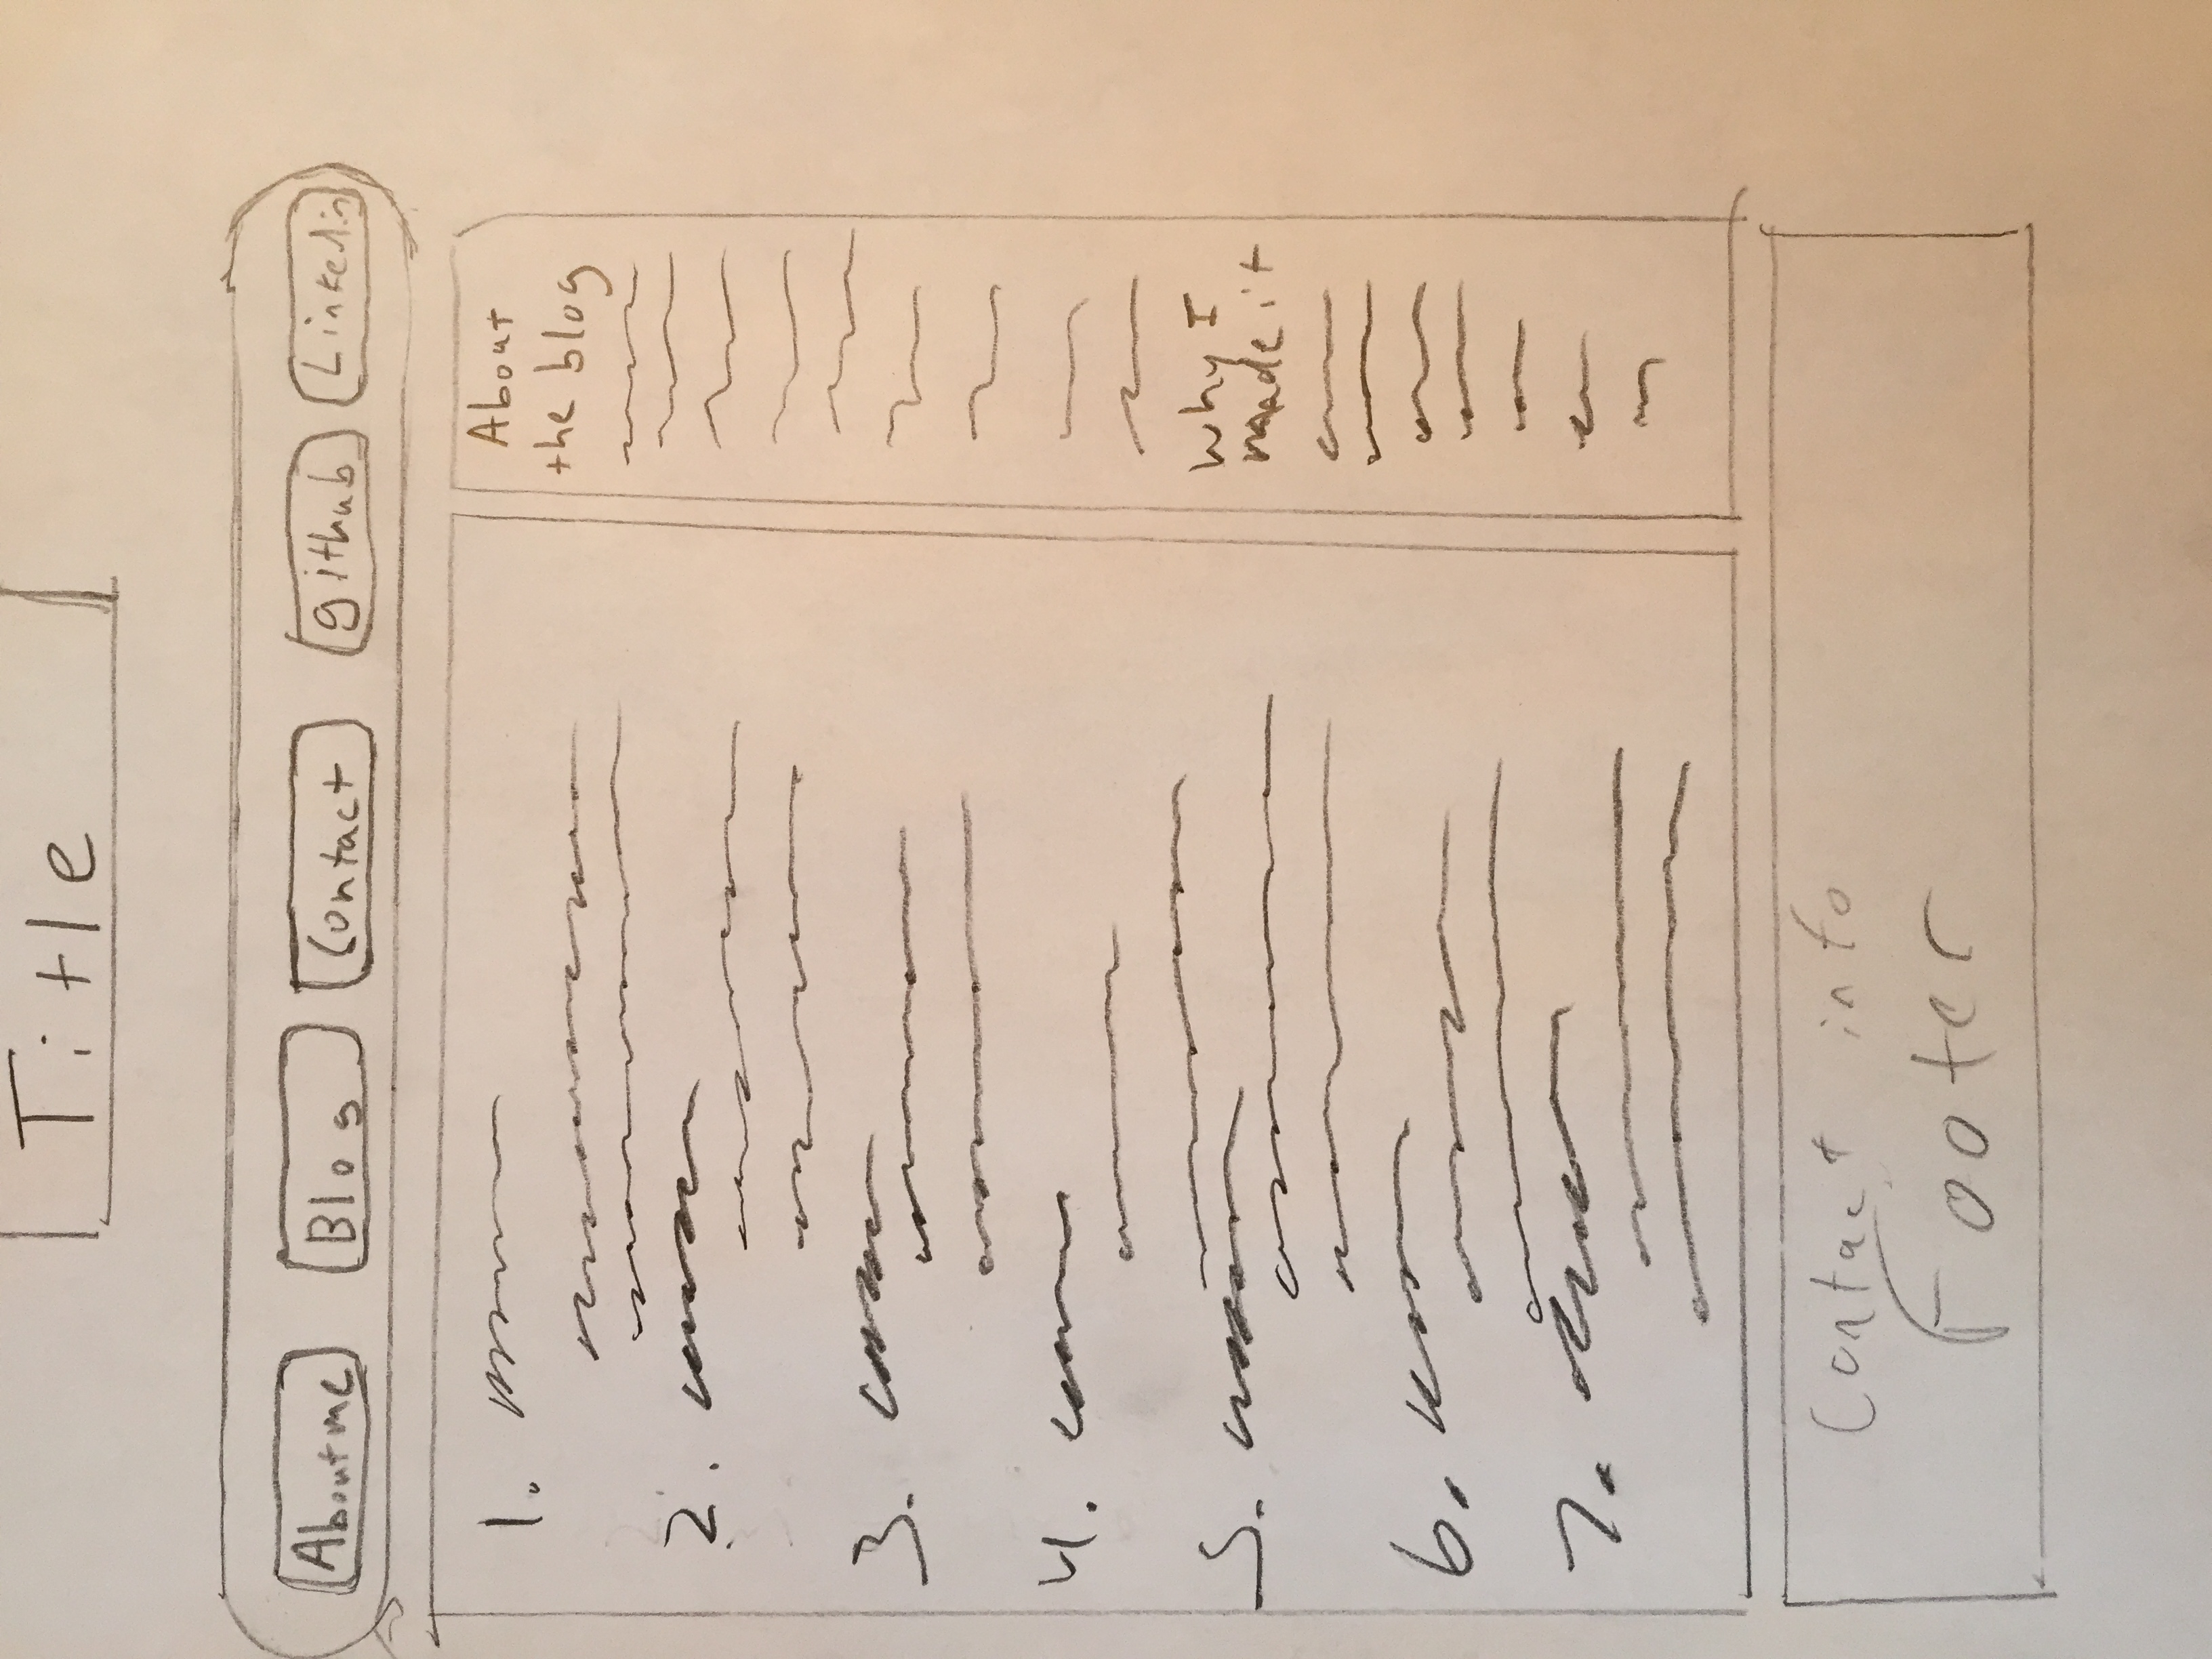 Title
About me Blog Contact github Linkedin
1.
2.
3.
4.
5.
6.
7.
About
the blog
Why I
made it
Contact info
Footer